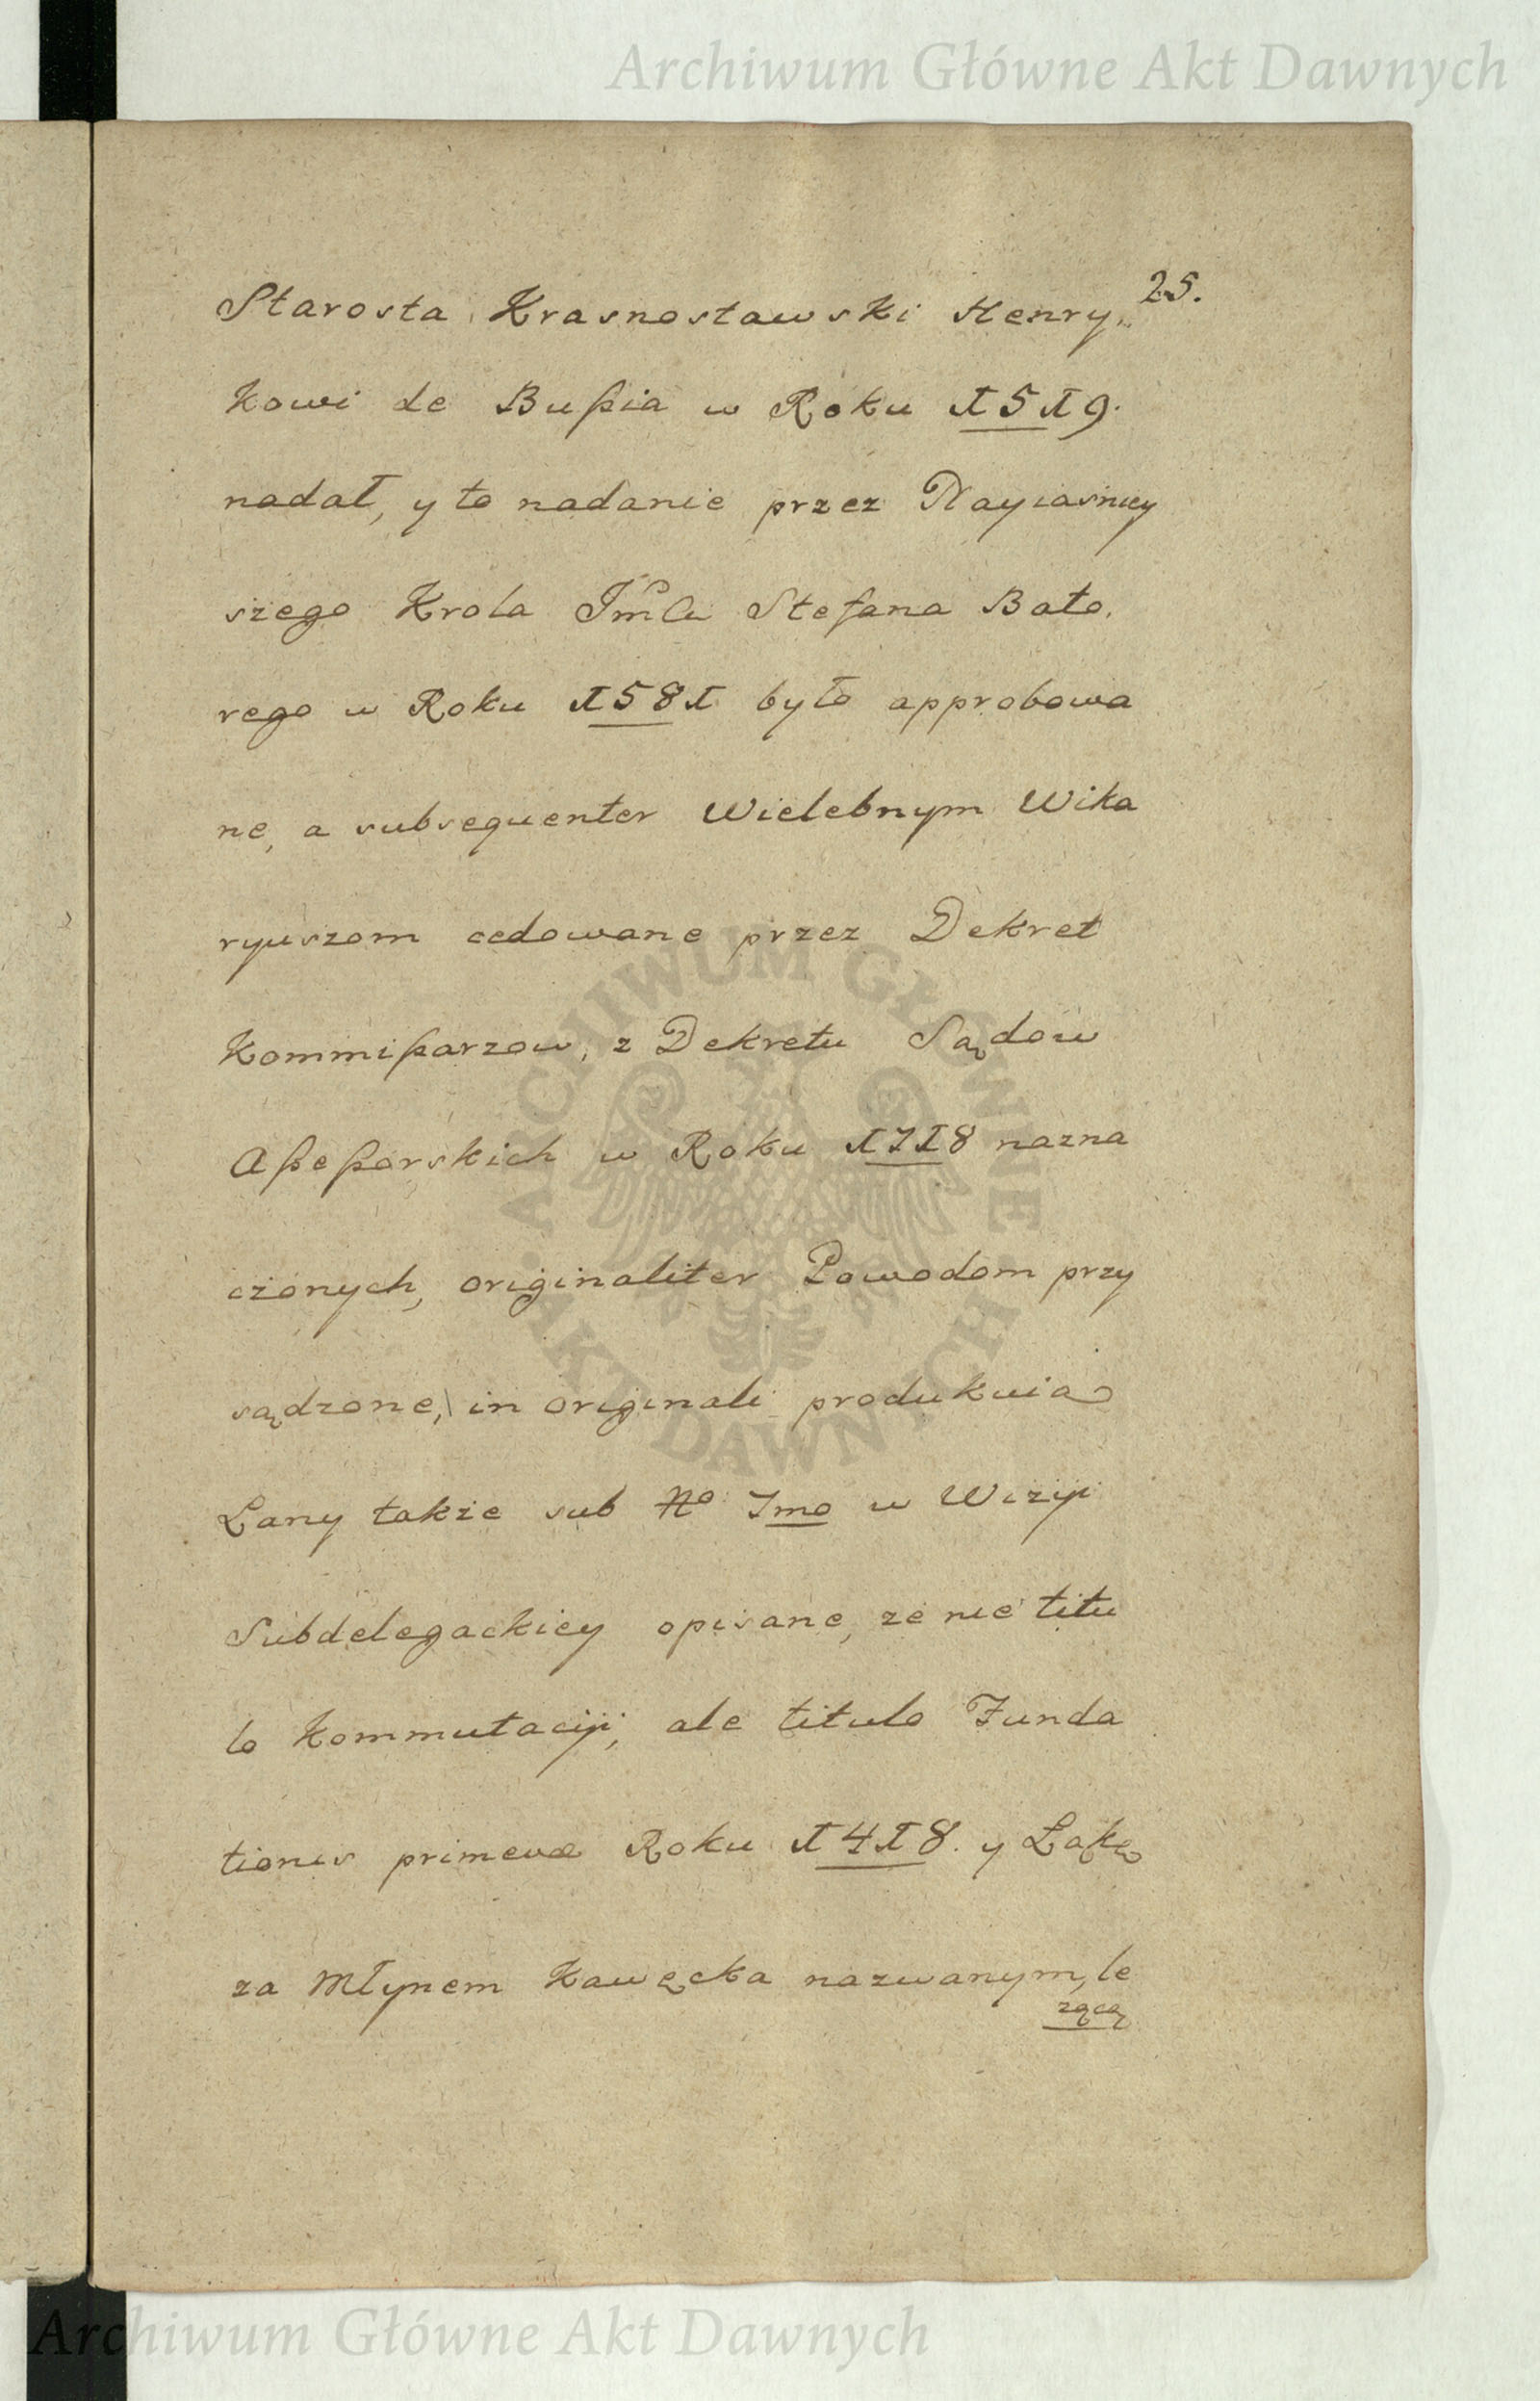 Archiwum Główne Akt Dawnych
25.
Starosta Krasnostawski Henry„
kowi de Bußia w Roku 1519.
nadał, y to nadanie przez Nayiasniey
szego Krola Jmci Stefana Bato,
rego w Roku 1581 było approbowa
ne, a subsequenter Wielebnym Wika
ryuszom cedowane przez Dekret
Kommißarzow, z Dekretu Sądow
Aßeßorskich w Roku 1718 nazna
czonych, originaliter Powodom przy
sądzone, in originali produkuią
Łany także sub No 1mo w Wizyi
Subdelegackiey opisane, że nie titu
lo Kommutacyi, ale titulo Funda
tionis primevæ Roku 1418. y Łąkę
za Młynem Kawęcka nazwanym, le
zącą
ARCHIWUM GŁÓWNE · AKT DAWNYCH ·
Archiwum Główne Akt Dawnych